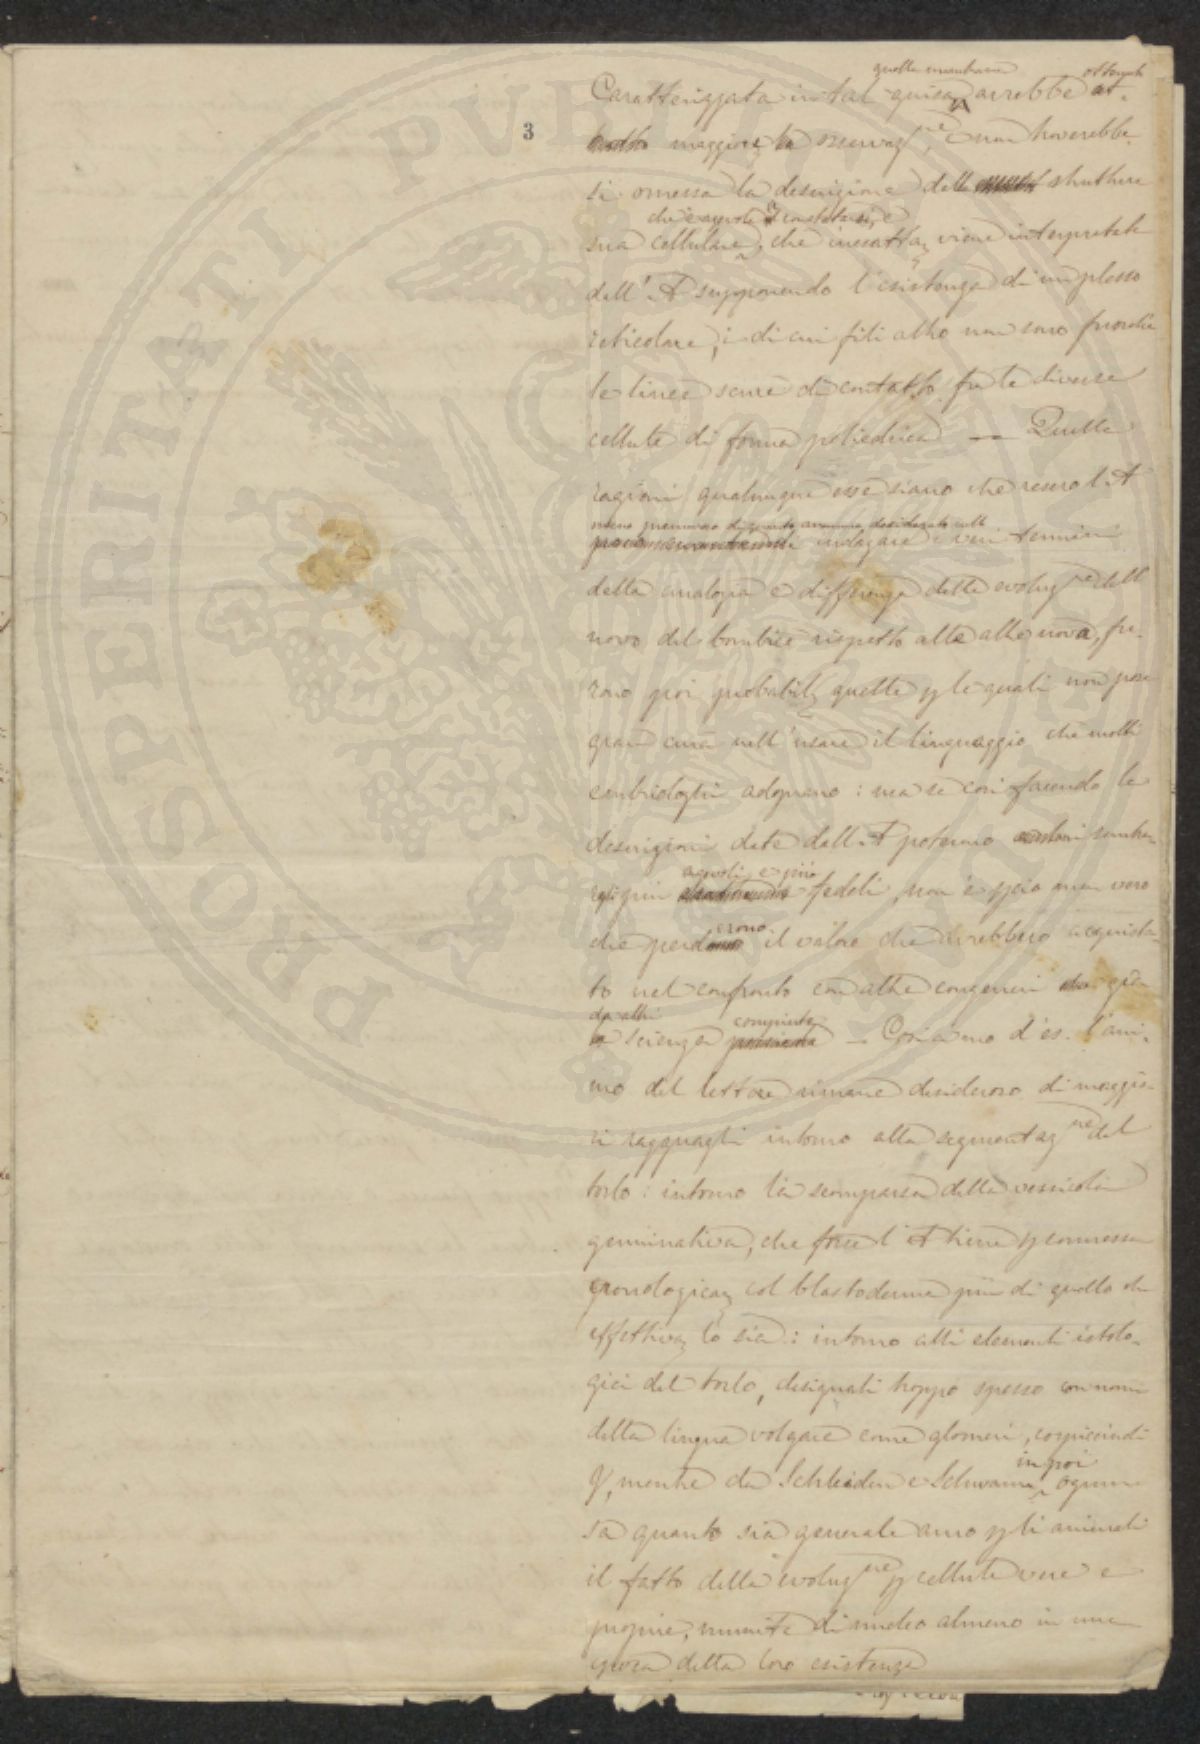 quella membrana ottenuto
Caratterizzata in tal guisa avrebbe
3
maggiore osservaz.ne, e non troverebbe-
si omessa la descrizione della struttura
che è agevole a constatarsi, e
sua cellulare, che inesatta viene interpretata
dall'A supponendo l'esistenza di un plesso
reticolare, i di cui fili altro non sono fuorchè
le linee scure di contatto fra le diverse
cellule di forma poliedrica — Quelle
ragioni qualunque esse siano che resero l'A
meno premuroso di quanto desiderato
indagare i veri termini
della analogia e differenza della evoluz.ne dell'
uovo del bombice rispetto alle altre uova, fu-
rono poi probabil. quelle p le quali non pose
gran cura nell'usare il linguaggio che molti
embriologhi adoprano: ma se così facendo le
descrizioni date dall'A poterono sembra-
agevoli, e più
re più fedeli, non è p ciò men vero
erono
che perd il valore che avrebbero acquista-
to nel confronto con altre congeneri già
da altri compiute
Scienza — Così a mo d'es. l'ani-
mo del lettore rimane desideroso di maggio-
ri ragguagli intorno alla segmentaz.ne del
torlo: intorno la scomparsa della vessicola
germinativa, che forse l'A tiene p connessa
cronologica col blastoderma più di quello che
effettiva lo sia: intorno alli elementi istolo-
gici del torlo, designati troppo spesso con nomi
della lingua volgare come glomeri, corpicciuoli
in poi
mentre da Schleiden e Schwann ognuno
sa quanto sia generale anco p li animali
il fatto della evoluz.ne p cellule vere e
proprie, munite di nucleo almeno in una
epoca della loro esistenza